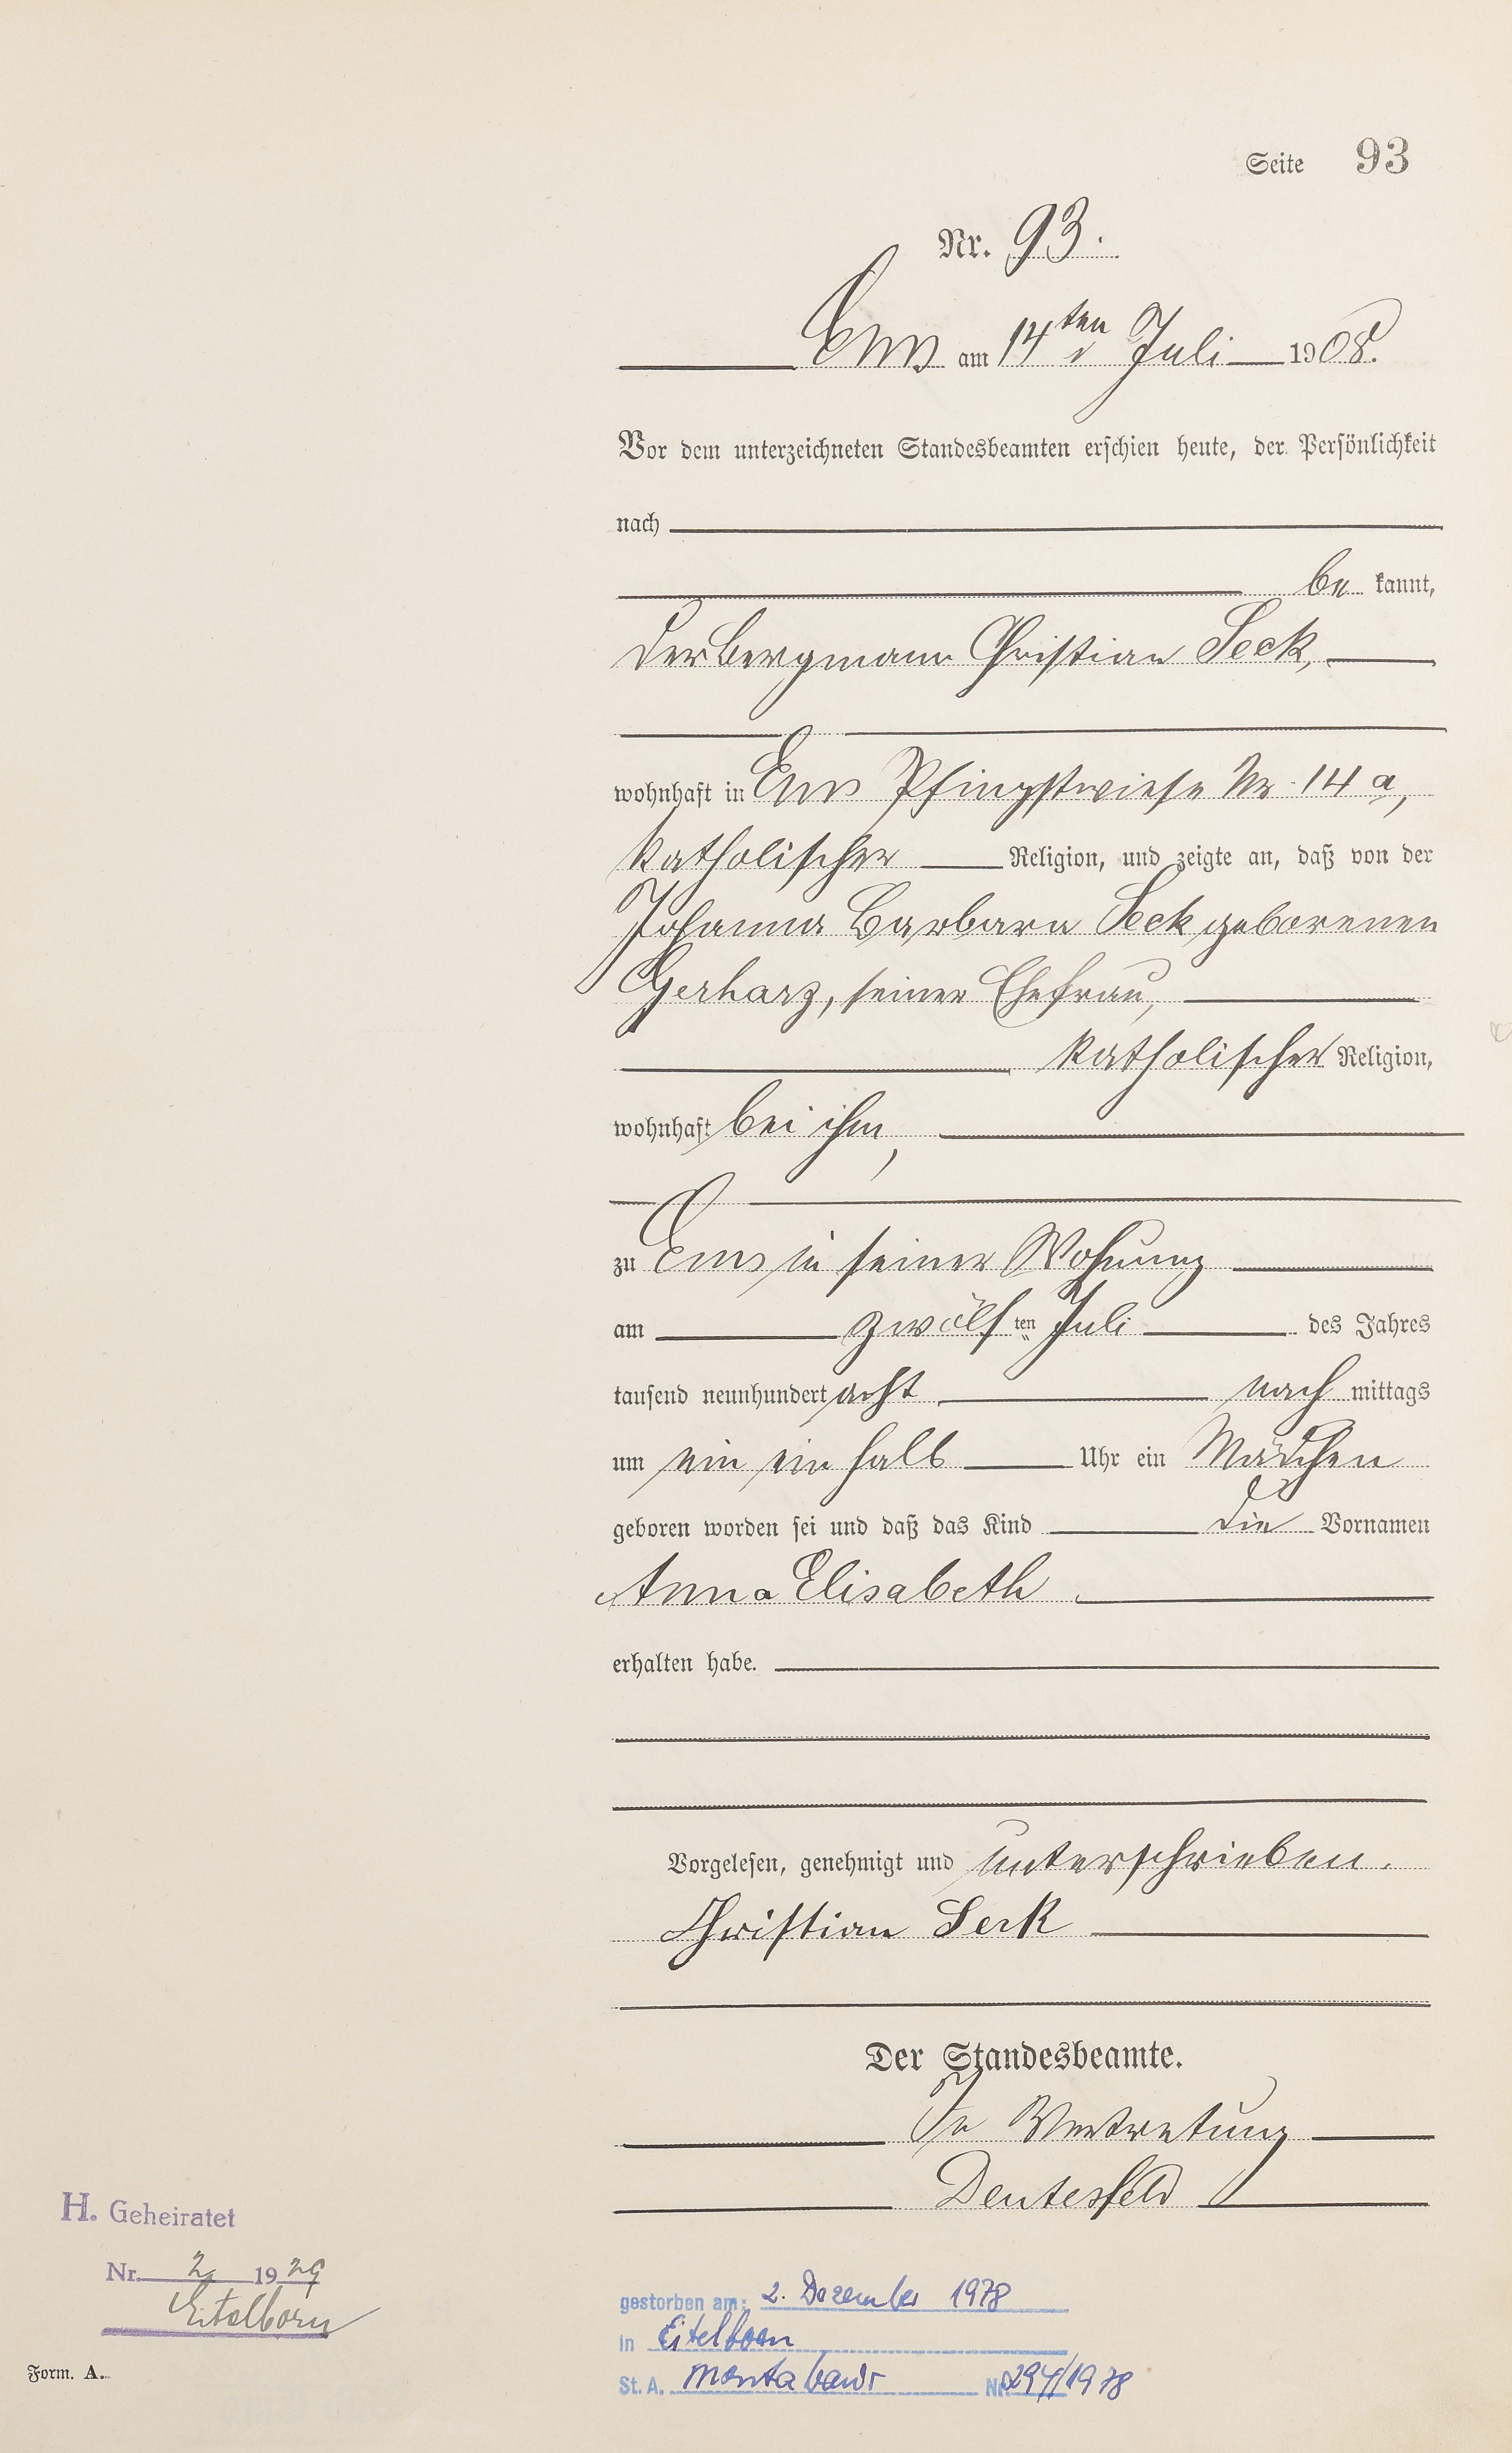 Seite 93
Nr. 93.
Ems am 14ten Juli 1908.
Vor dem unterzeichneten Standesbeamten erschien heute, der Persönlichkeit
nach
be kannt,
der Bergmann Christian Seck,
wohnhaft in Ems Pfingstwiese Nr. 14a,
katholischer Religion, und zeigte an, daß von der
Johanna Barbara Seck geborenen
Gerharz, seiner Ehefrau,
katholischer Religion,
wohnhaft bei ihm,
zu Ems in seiner Wohnung
am zwölften Juli des Jahres
tausend neunhundert acht nach mittags
um ein ein halb Uhr ein Mädchen
geboren worden sei und daß das Kind die Vornamen
Anna Elisabeth
erhalten habe.
Vorgelesen, genehmigt und unterschrieben.
Christian Seck
Der Standesbeamte.
In Vertretung
Deutesfeld
H. Geheiratet
Nr. 2 1929
Eitelborn
gestorben am: 2. Dezember 1978
in Eitelborn
St. A. Montabaur Nr. 294/1978
Form. A.